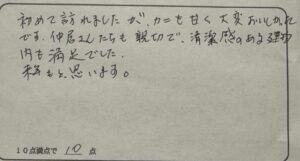 初めて訪れましたが、カニも甘く大変おいしかった
です。仲居さんたちも親切で、清潔感のある建物
内も満足でした。
来ようと思います。
10点満点で 10 点